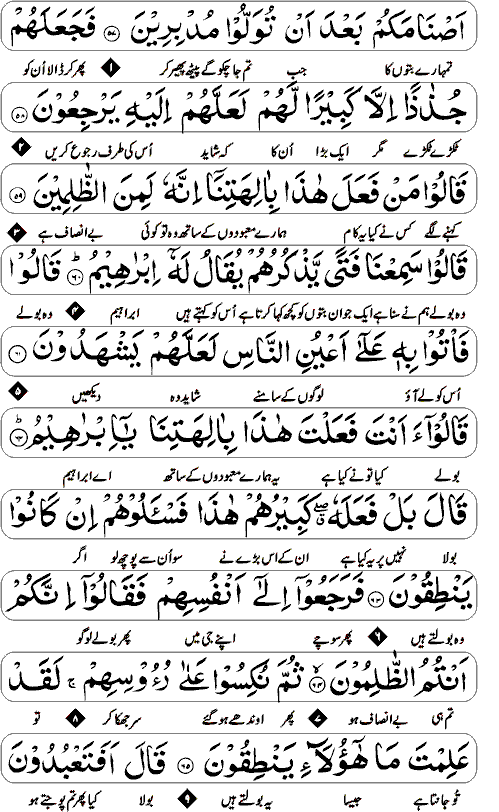 اَصْنَامَكُمْ بَعْدَ اَنْ تُوَلُّوْا مُدْبِرِيْنَ ۝۵۷ فَجَعَلَهُمْ
تمہارے بتوں کا جب تم جا چکو گے پیٹھ پھیر کر ۱ پھر کر ڈالا اُن کو
جُذٰذًا اِلَّا كَبِيْرًا لَّهُمْ لَعَلَّهُمْ اِلَيْهِ يَرْجِعُوْنَ ۝۵۸
ٹکڑے ٹکڑے مگر ایک بڑا اُن کا کہ شاید اُس کی طرف رجوع کریں ۲
قَالُوْا مَنْ فَعَلَ هٰذَا بِاٰلِهَتِنَاۤ اِنَّهٗ لَمِنَ الظّٰلِمِيْنَ ۝۵۹
کہنے لگے کس نے کیا یہ کام ہمارے معبودوں کے ساتھ وہ تو کوئی بے انصاف ہے ۳
قَالُوْا سَمِعْنَا فَتًى يَّذْكُرُهُمْ يُقَالُ لَهٗۤ اِبْرٰهِيْمُ ۝۶۰ؕ قَالُوْا
وہ بولے ہم نے سنا ہے ایک جوان بتوں کو کچھ کہا کرتا ہے اُس کو کہتے ہیں ابراہیم ۴ وہ بولے
فَاْتُوْا بِهٖ عَلٰۤى اَعْيُنِ النَّاسِ لَعَلَّهُمْ يَشْهَدُوْنَ ۝۶۱
اُس کو لے آؤ لوگوں کے سامنے شاید وہ دیکھیں ۵
قَالُوْۤا ءَاَنْتَ فَعَلْتَ هٰذَا بِاٰلِهَتِنَا يٰۤاِبْرٰهِيْمُ ۝۶۲ؕ
بولے کیا تو نے کیا ہے یہ ہمارے معبودوں کے ساتھ اے ابراہیم
قَالَ بَلْ فَعَلَهٗ ۖۗ كَبِيْرُهُمْ هٰذَا فَسْـَٔلُوْهُمْ اِنْ كَانُوْا
بولا نہیں پر یہ کیا ہے ان کے اس بڑے نے سو اُن سے پوچھ لو اگر
يَنْطِقُوْنَ ۝۶۳ فَرَجَعُوْۤا اِلٰۤى اَنْفُسِهِمْ فَقَالُوْۤا اِنَّكُمْ
وہ بولتے ہیں ۶ پھر سوچے اپنے جی میں پھر بولے لوگو
اَنْتُمُ الظّٰلِمُوْنَ ۝۶۴ۙ ثُمَّ نُكِسُوْا عَلٰى رُءُوْسِهِمْ ۚ لَقَدْ
تم ہی بے انصاف ہو ۷ پھر اوندھے ہو گئے سر جھکا کر ۸ تو
عَلِمْتَ مَا هٰۤؤُلَآءِ يَنْطِقُوْنَ ۝۶۵ قَالَ اَفَتَعْبُدُوْنَ
تُو جانتا ہے جیسا یہ بولتے ہیں ۹ بولا کیا پھر تم پوجتے ہو